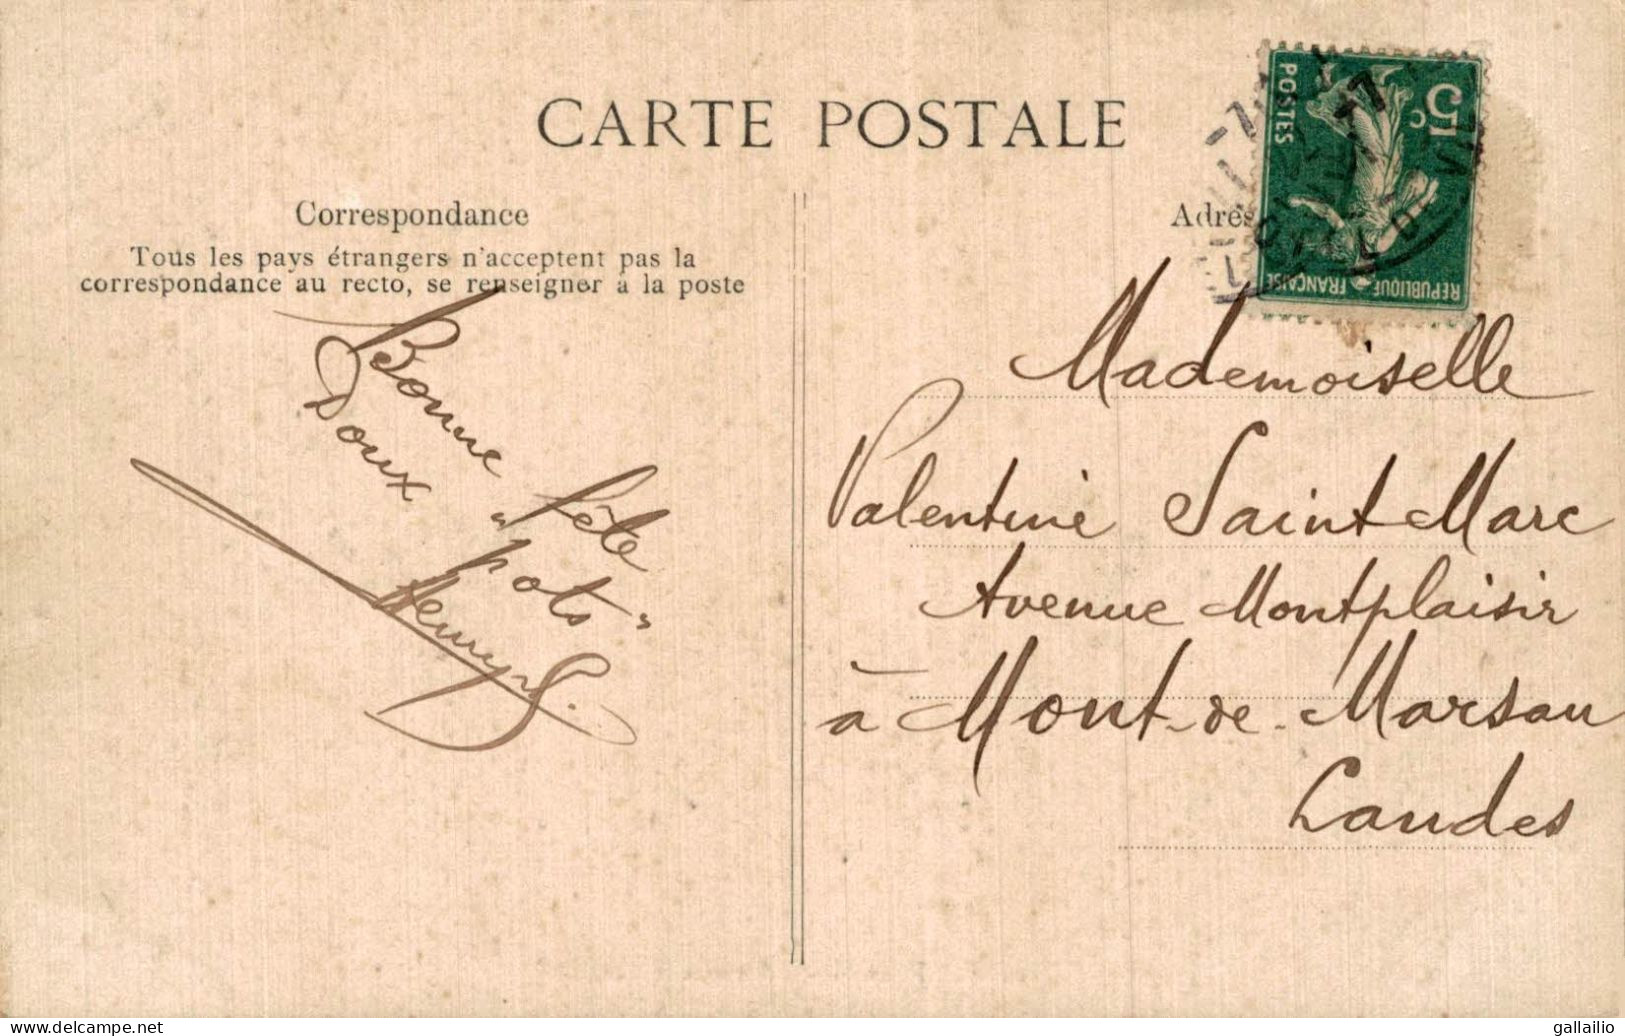 CARTE POSTALE
Correspondance
Tous les pays étrangers n'acceptent pas la
correspondance au recto, se renseigner à la poste
Bonne fête
Doux "pots"
Henry S.
Adres
5c
POSTES
REPUBLIQUE FRANÇAISE
Mademoiselle
Valentine Saint-Marc
Avenue Montplaisir
à Mont-de-Marsan
Landes
gallailio © Delcampe.net